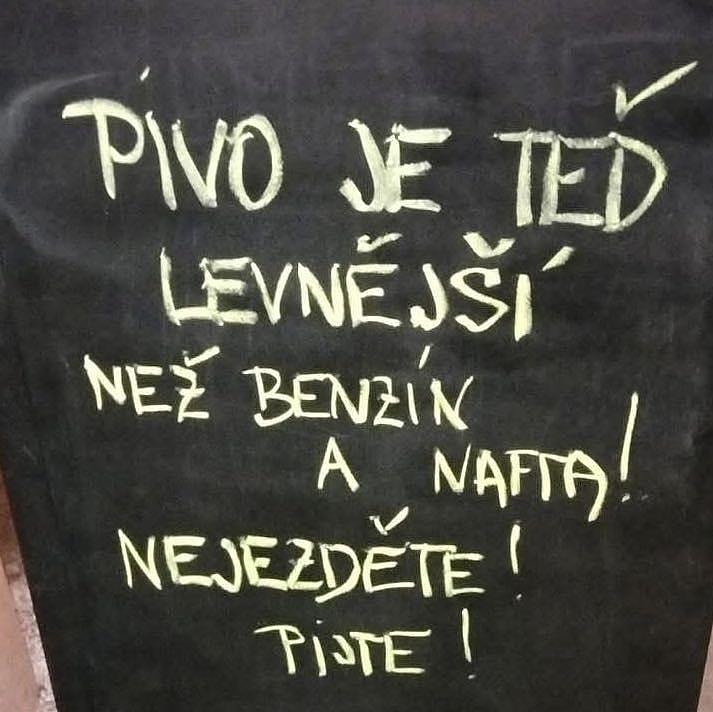 PÍVO JE TEĎ
LEVNĚJŠÍ
NEŽ BENZÍN
A NAFTA!
NEJEZDĚTE!
PIJTE!